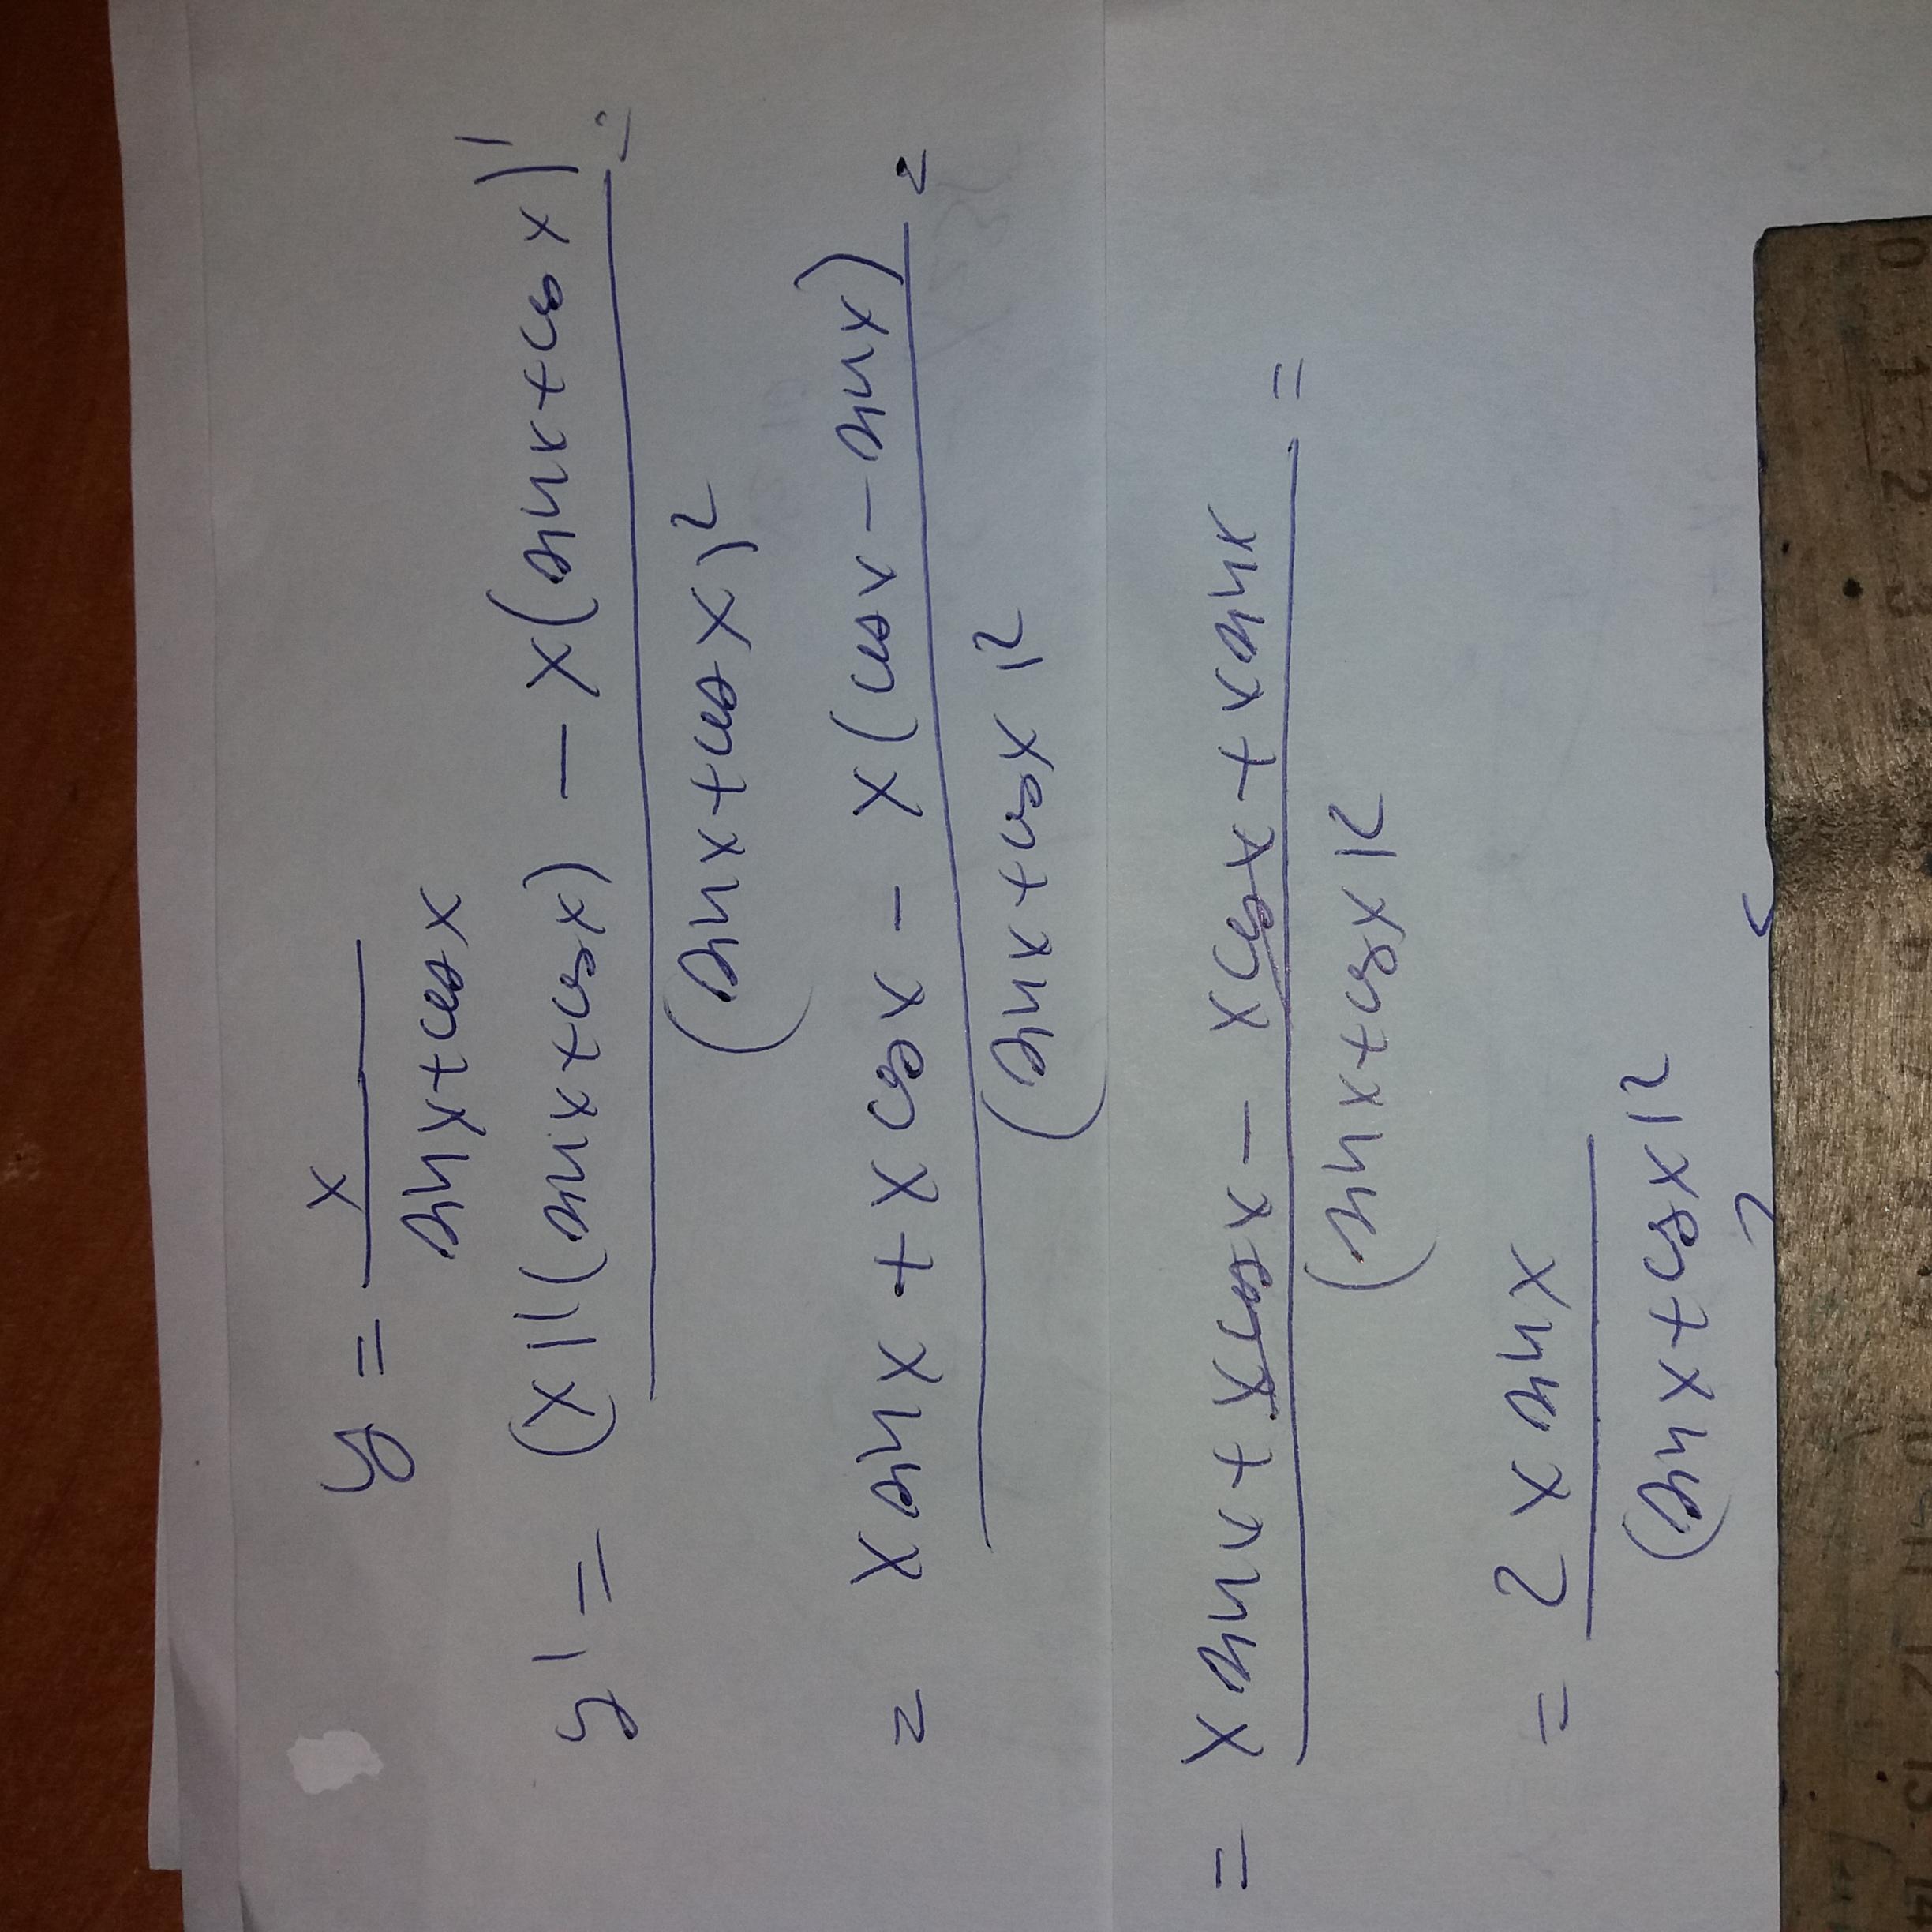 y = x / (sin x + cos x)
y' = ((x)'(sin x + cos x) - x(sin x + cos x)') / (sin x + cos x)² =
= (x sin x + x cos x - x(cos x - sin x)) / (sin x + cos x)² =
= (x sin x + x cos x - x cos x + x sin x) / (sin x + cos x)² =
= 2 x sin x / (sin x + cos x)²
0 1 2 3 4 5 6 7 8 9 10 11 12 13 14